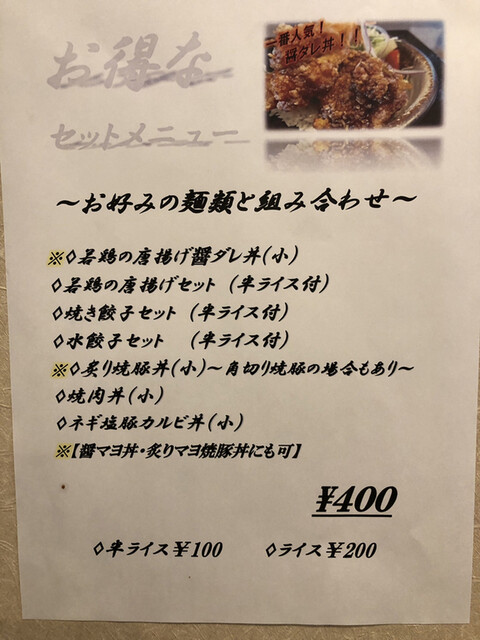 お得な
セットメニュー
一番人気！
醤ダレ丼！！
～お好みの麺類と組み合わせ～
※◇若鶏の唐揚げ醤ダレ丼(小)
◇若鶏の唐揚げセット (半ライス付)
◇焼き餃子セット (半ライス付)
◇水餃子セット (半ライス付)
※◇炙り焼豚丼(小)～角切り焼豚の場合もあり～
◇焼肉丼(小)
◇ネギ塩豚カルビ丼(小)
※【醤マヨ丼・炙りマヨ焼豚丼にも可】
¥400
◇半ライス¥100 ◇ライス¥200